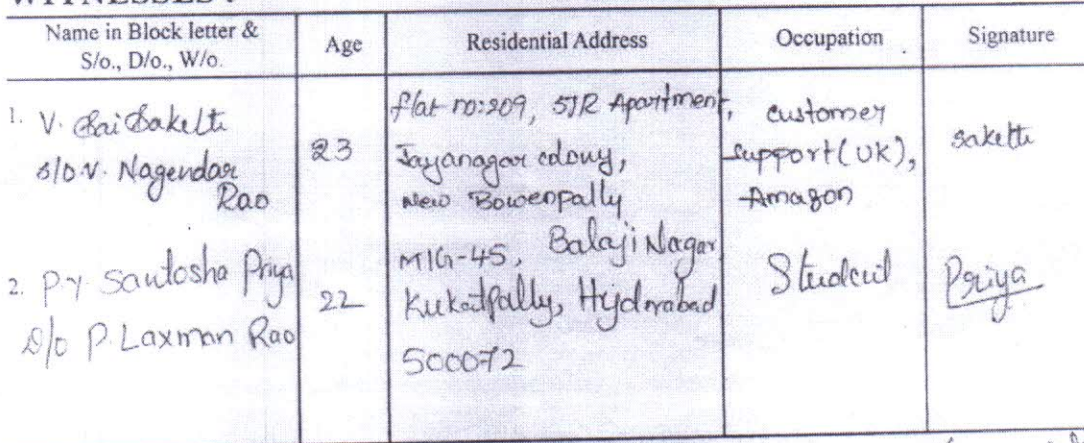 WITNESSES :
Name in Block letter &
S/o., D/o., W/o.
Age
Residential Address
Occupation
Signature
1. V. Sai Saketh
S/o V. Nagendar
Rao
23
flat no:209, SJR Apartment,
Jayanagar colony,
New Bowenpally
customer
support(UK),
Amazon
saketh
2. P.Y Santosha Priya
D/o P. Laxman Rao
22
MIG-45, Balaji Nagar
Kukatpally, Hyderabad
500072
Student
Priya